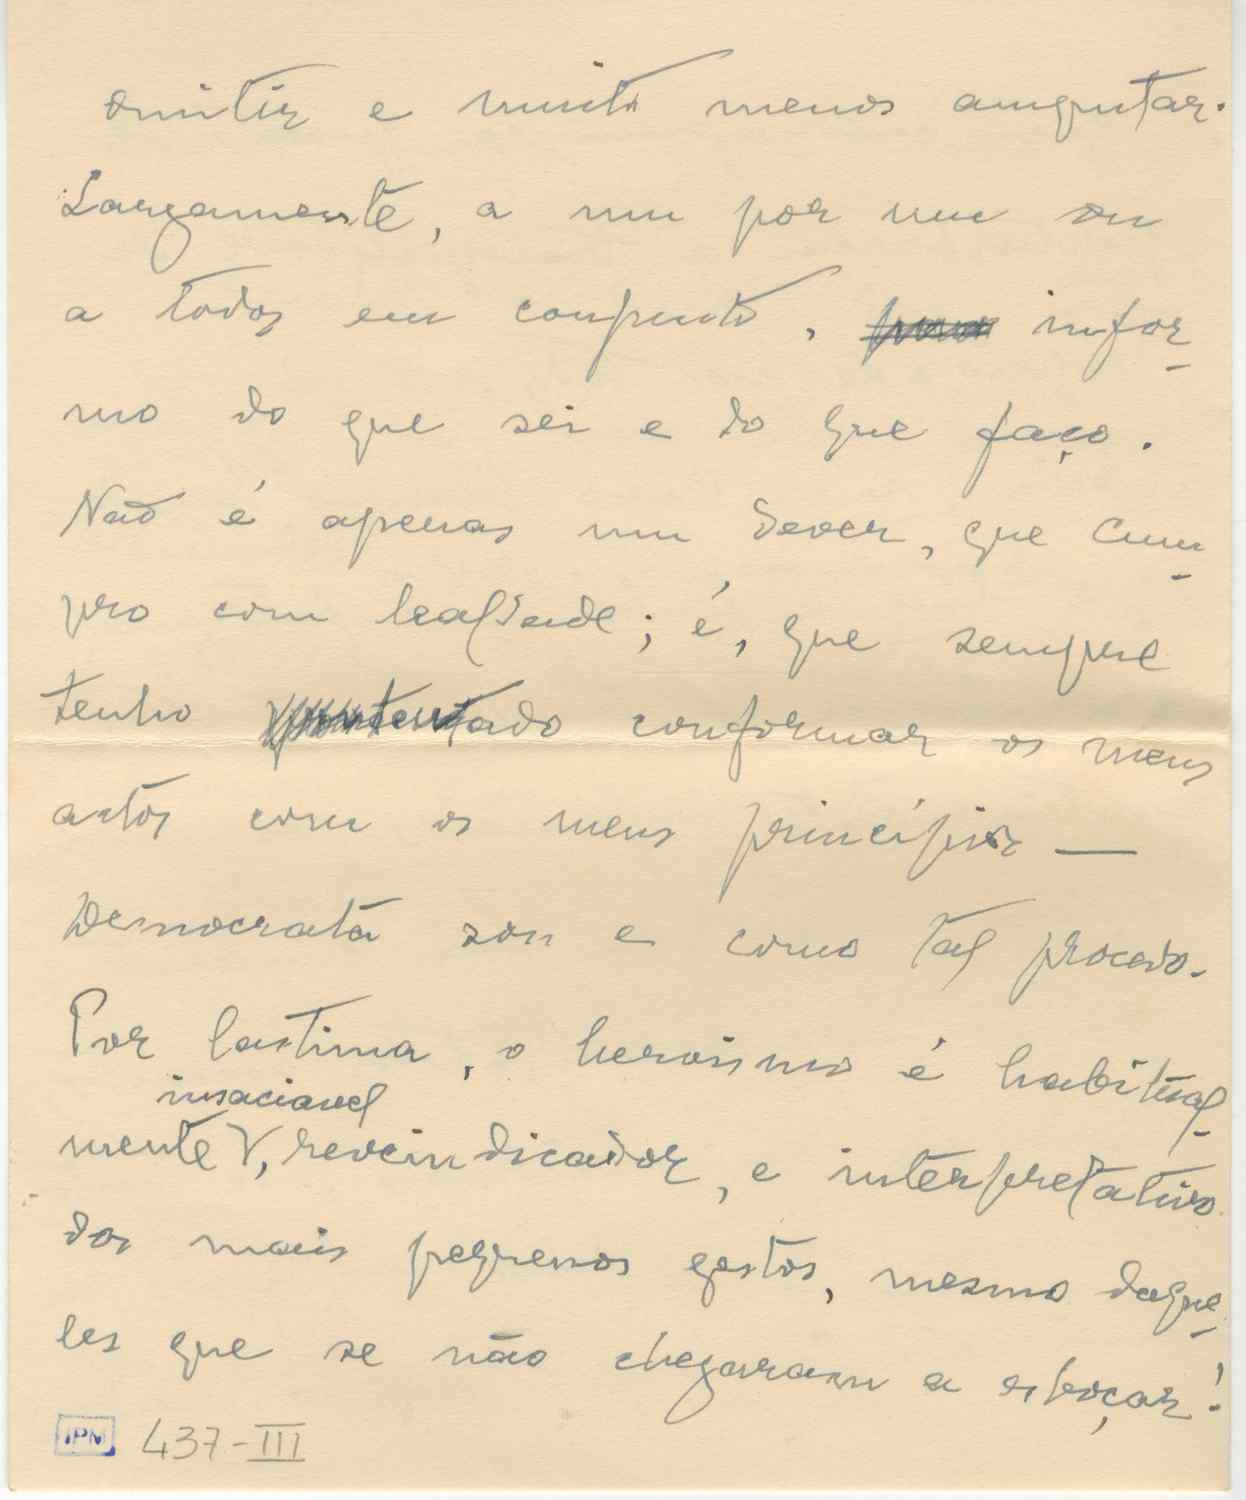 omitir e muito menos amputar.
Largamente, a um por um ou
a todos em conjunto, infor-
mo do que sei e do que faço.
Não é apenas um dever, que cum-
pro com lealdade; é, que sempre
tenho tentado conformar os meus
actos com os meus princípios —
Democrata sou e como tal procedo.
Por lastima, o heroismo é habitual-
insaciavel
mente V, reveindicador, e interpretativo
dos mais pequenos gestos, mesmo daque-
les que se não chegaram a esboçar!
IPM 437-III